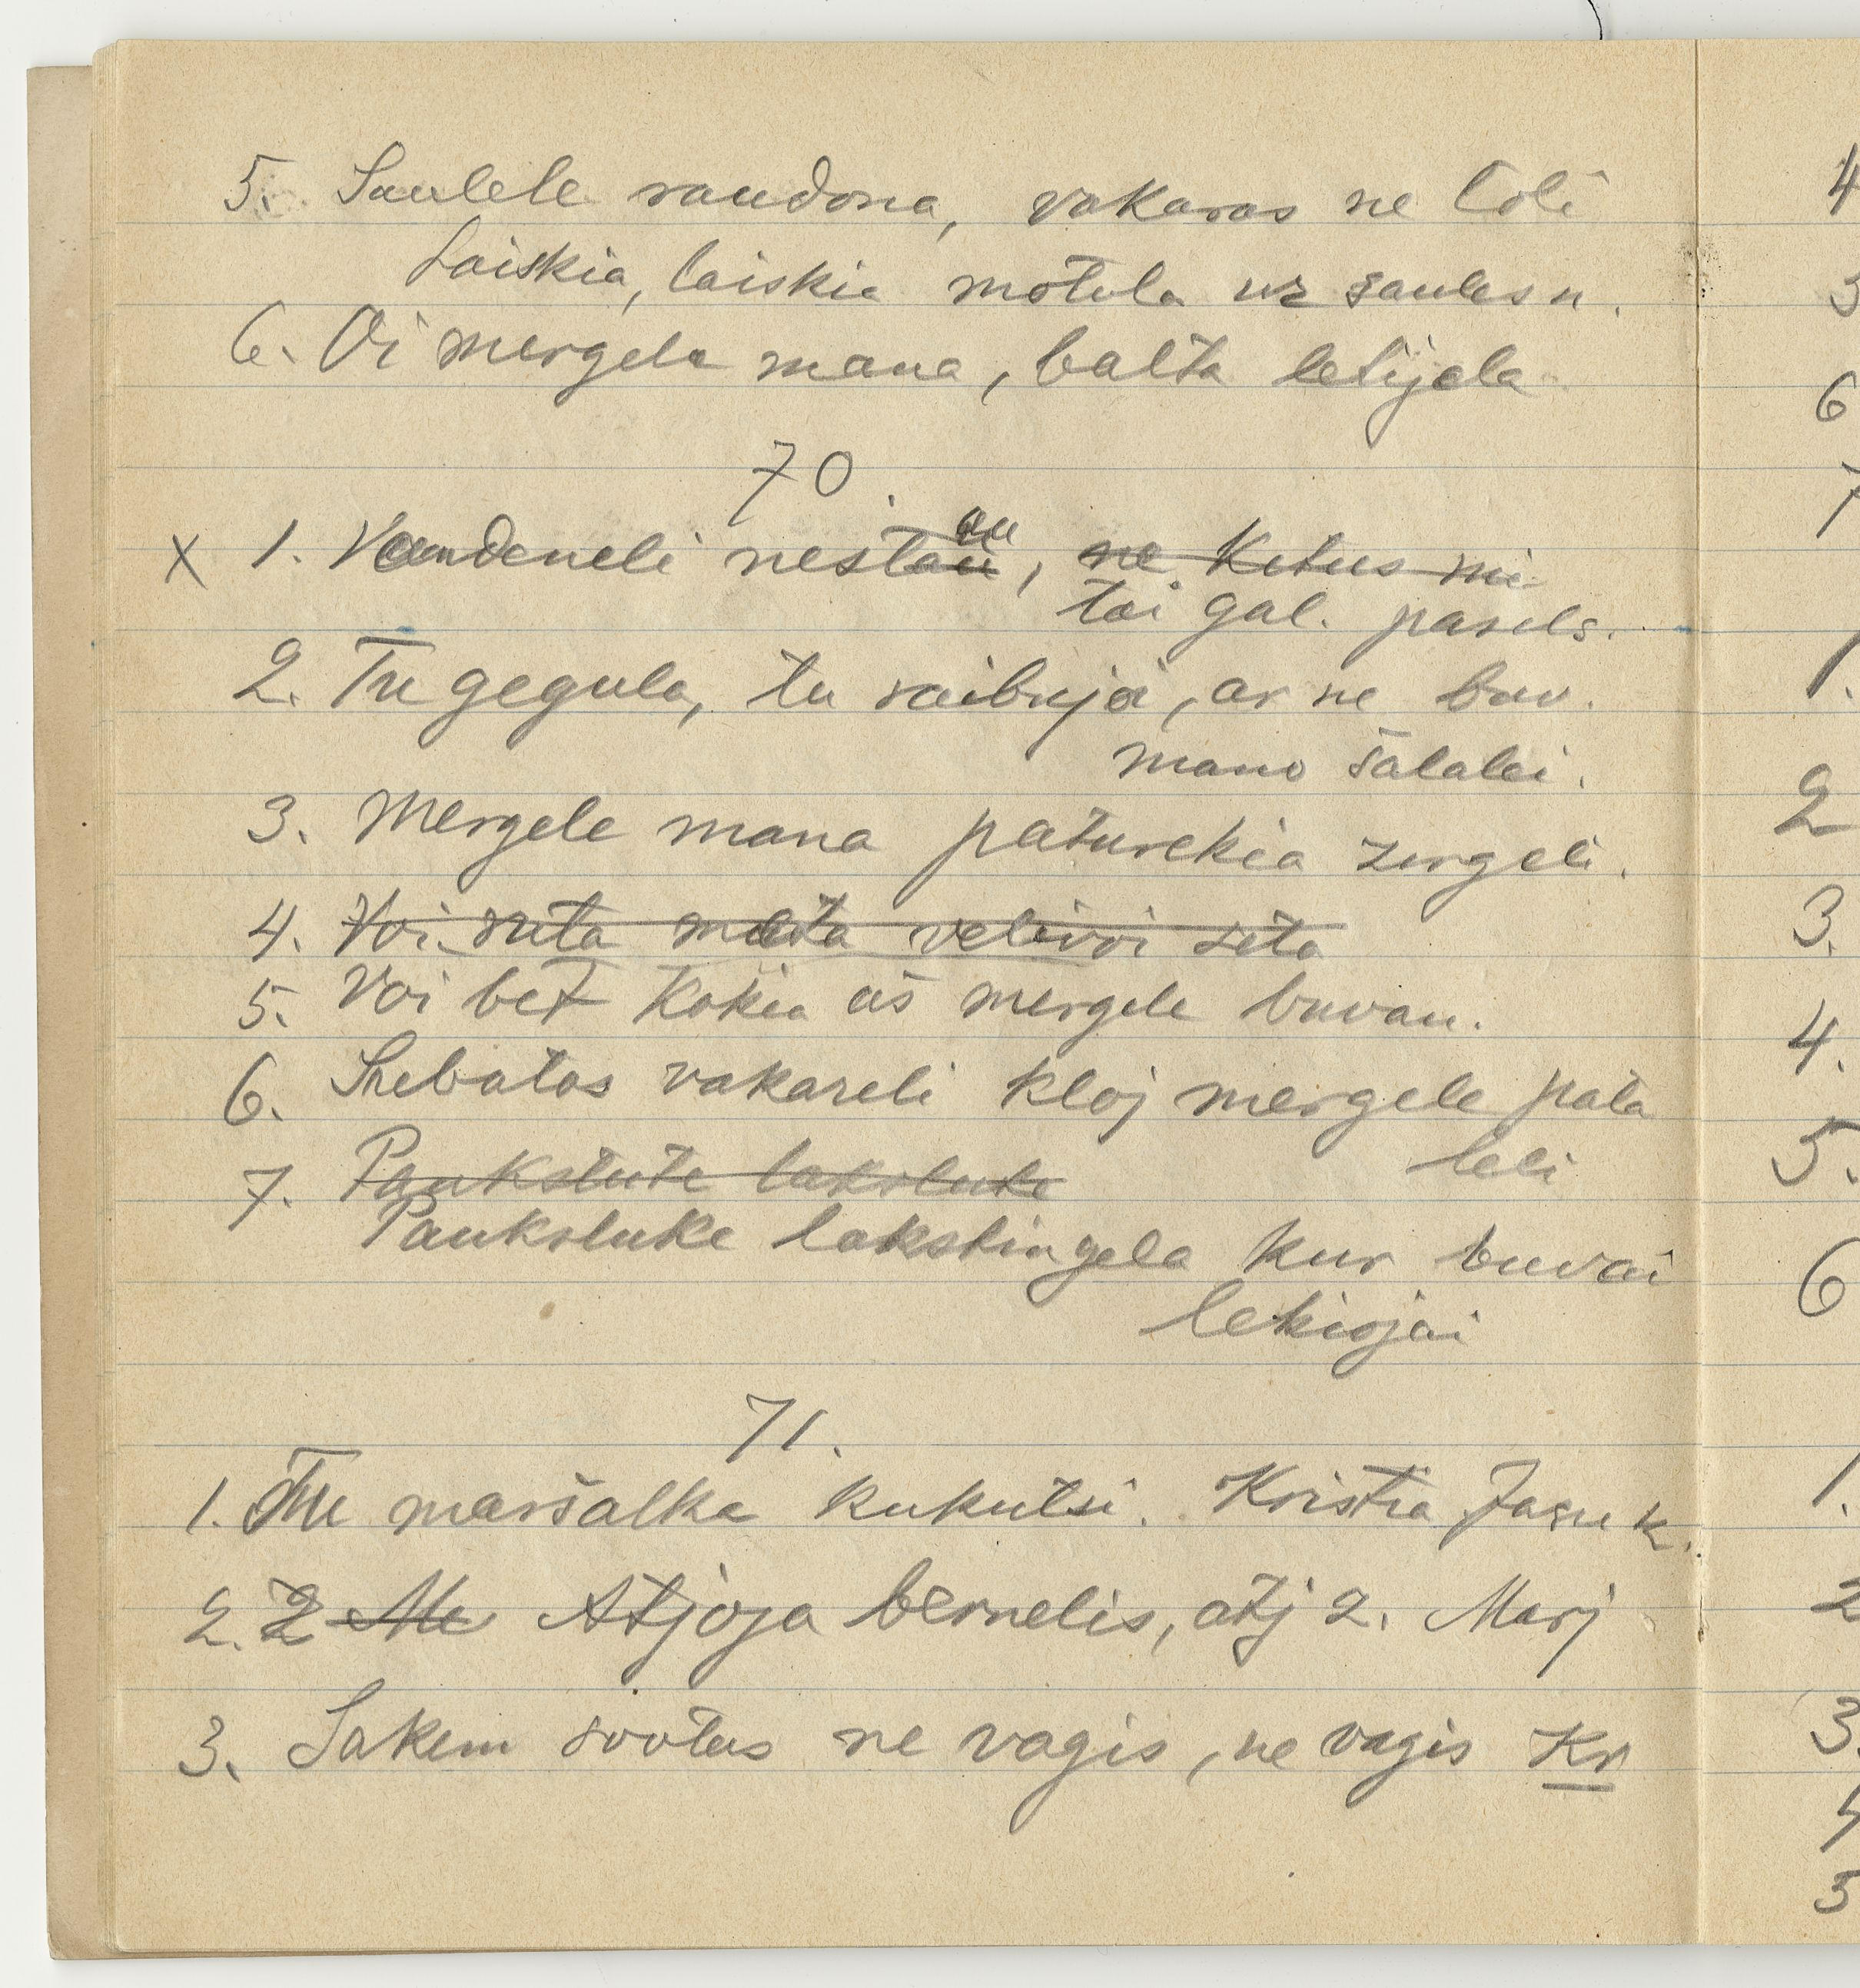 5. Saulele raudona, vakaras ne toli
Laiskia, laiskia motula uz saulesu.
6. Oi mergela mana, balta lelijela
70.
x 1. Vandeneli nestau, ne Kitus mi
tai gal. pasels.
2. Tu gegula, tu raibuja, ar ne buv.
mano šalalei.
3. Mergele mana paturekia zirgeli.
4. Voi ruta meta velivoi seta
5. Voi bet Kokia aš mergele buvau.
6. Subatos vakareli kloj mergele pata
leli
7. Paukstute lakstute
Paukstuke lakstingela kur buvai
lekiojai
71.
1. Tu maršalka kukutsi. Kristia Jasuk.
2. 2 Me Atjoja bernelis, atj 2. Marj
3. Sakem svotus ne vagis, ne vagis Kr
4
3
6
7
1.
2
3.
4.
5.
6
1.
2
3.
4
5